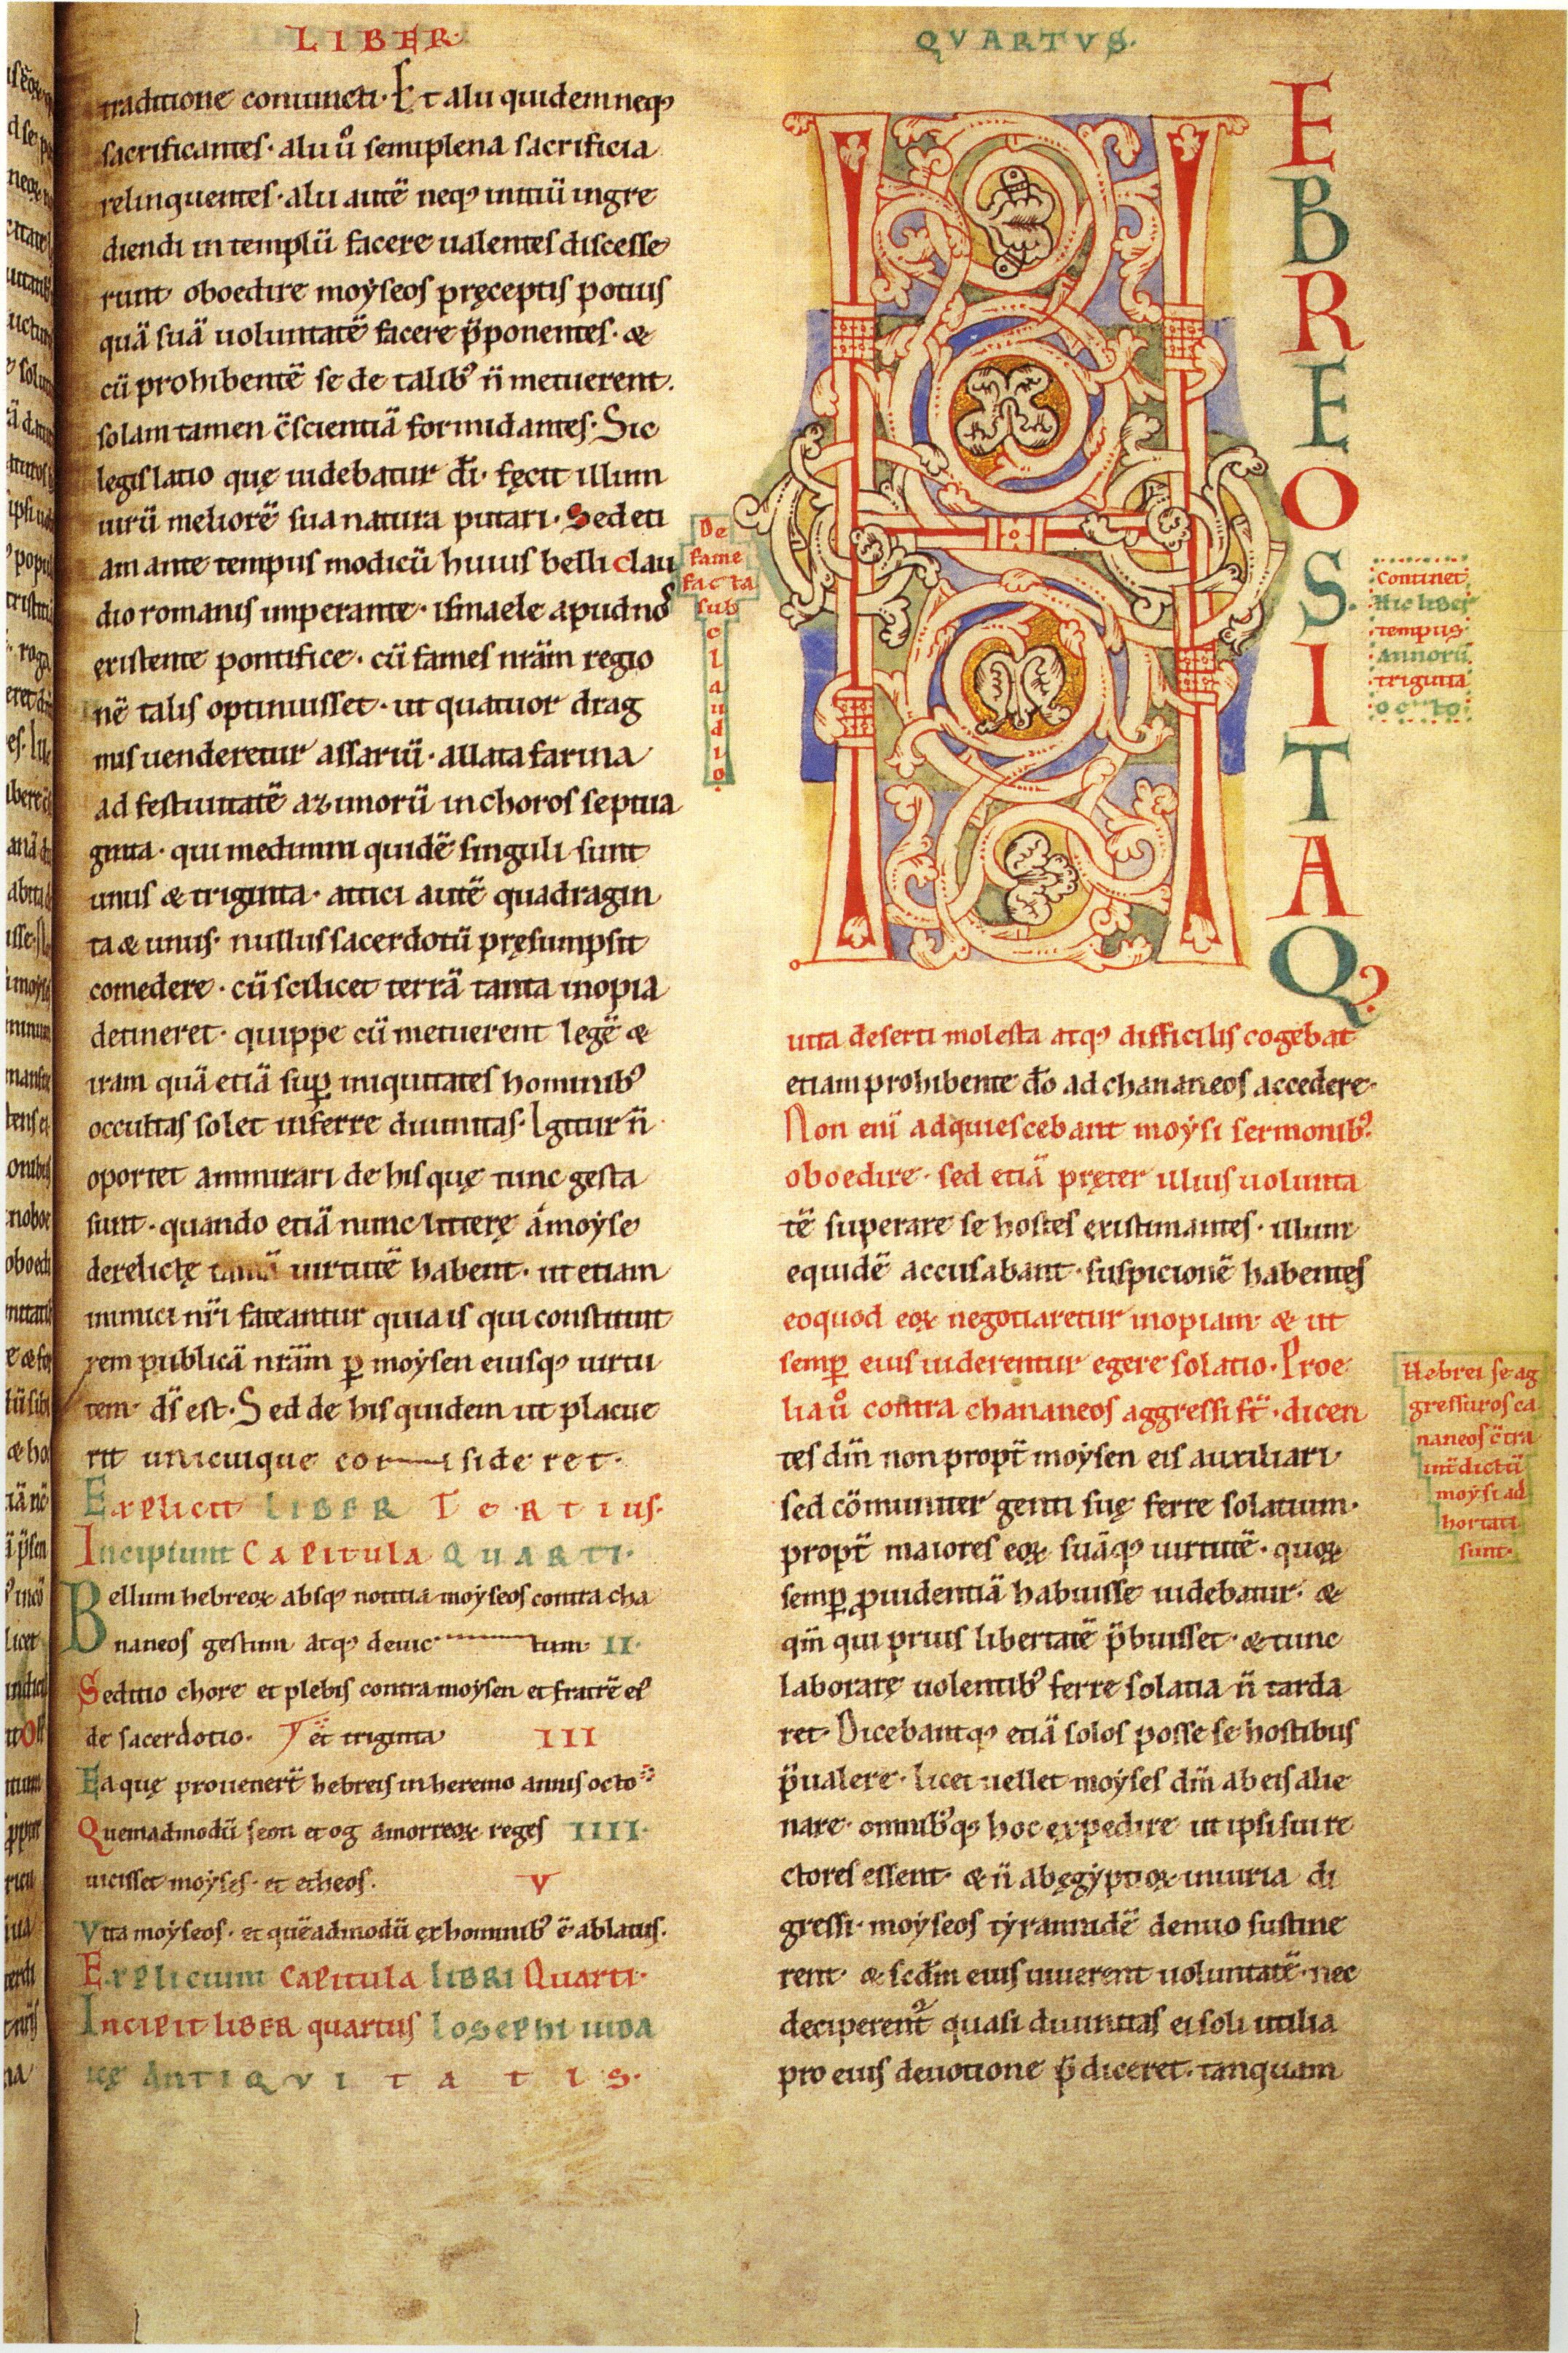 LIBER·
traditione coniuncti· Et alii quidem neq;
sacrificantes· alii ů semiplena sacrificia
relinquentes· alii autē neq; initiū ingre
diendi in templū facere ualentes discesse
runt oboedire moẏseos pręceptis potius
quā suā uoluntatē facere p̄ponentes· &
cū prohibentē se de talib; n̄ metuerent.
solam tamen c̄scientiā formidantes· Sic
legislatio quę uidebatur dī· fęcit illum
uirū meliorē sua natura putari· Sed eti
am ante tempus modicū huius belli clau
dio romanis imperante· ismaele apud nos
existente pontifice· cū fames nrām regio
nē talis optinuisset· ut quatuor drag
mis uenderetur assariū· allata farina
ad festiuitatē azimorū in choros septua
ginta· qui medimni quidē singuli sunt
unus & triginta· attici autē quadragin
ta & unus· nullus sacerdotū pręsumpsit
comedere· cū scilicet terrā tanta inopia
detineret· quippe cū metuerent legē &
iram quā etiā sup̱ iniquitates hominib;
occultas solet inferre diuinitas· Igitur n̄
oportet ammirari de his quę tunc gesta
sunt· quando etiā nunc litterę á moẏse
derelictę tantā uirtutē habent· ut etiam
inimici nr̄i fateantur quia is qui constituit
rem publicā nrām p̱ moẏsen eiusq; uirtu
tem· ds̄ est· Sed de his quidem ut placue
rit unicuique consideret·
Explicit LIBER Tertius·
Incipiunt Capitula QUARTI·
Bellum hebreoꝝ absq; notitia moẏseos contra cha
naneos gestum atq; deuictum· II·
Seditio chore et plebis contra moẏsen et fratrē eī
de sacerdotio· et triginta III
Ea quę prouenert̄ hebreis in heremo annis octo
Quemadmodū seon et og amorreoꝝ reges IIII·
uicisset moẏses· et etheos· V
Vita moẏseos· et quēadmodū ex hominib; ē ablatus.
Explicium Capitula LIBRI Quarti·
Incipit LIBER quartus Iosephi iuda
icę ANTIQVITATIS·
De
fame
facta
sub
claudio·
QVARTVS·
HEBREOS ITAQ;
Continet
hic liber
tempus
annorū
triginta
octo·
uita deserti molesta atq; difficilis cogebat
etiam prohibente dō ad chananeos accedere·
Non enī adquiescebant moẏsi sermonib;
oboedire· sed etiā pręter illius uolunta
tē superare se hostes existimantes· illum
equidē accusabant· suspicionē habentes
eo quod eoꝝ negotiaretur inopiam· & ut
semp̱ eius uiderentur egere solatio· Proe
lia ů contra chananeos aggressi st̄· dicen
tes dm̄ non propt̄ moẏsen eis auxiliari
sed cōmuniter genti suę ferre solatium·
propt̄ maiores eoꝝ suāq; uirtutē· quoꝝ
semp̱ ꝓuidentiā habuisse uidebatur· &
qm̄ qui prius libertatē p̄buisset· & tunc
laborarę uolentib; ferre solatia n̄ tarda
ret· Dicebantq; etiā solos posse se hostibus
p̄ualere· licet uellet moẏses dm̄ ab eis alie
nare· omnib;q; hoc expedire ut ipsi sui re
ctores essent· & n̄ ab ęgẏptioꝝ iniuria di
gressi· moẏseos tẏrannidē denuo sustine
rent· & scdm̄ eius uiuerent uoluntatē· nec
deciperent̄ quasi diuinitas ei soli utilia
pro eius deuotione p̄diceret· tanquam
Hebrei se ag
gressuros ca
naneos c̄tra
int̄dictū
moẏsi ad
hortati
sunt·